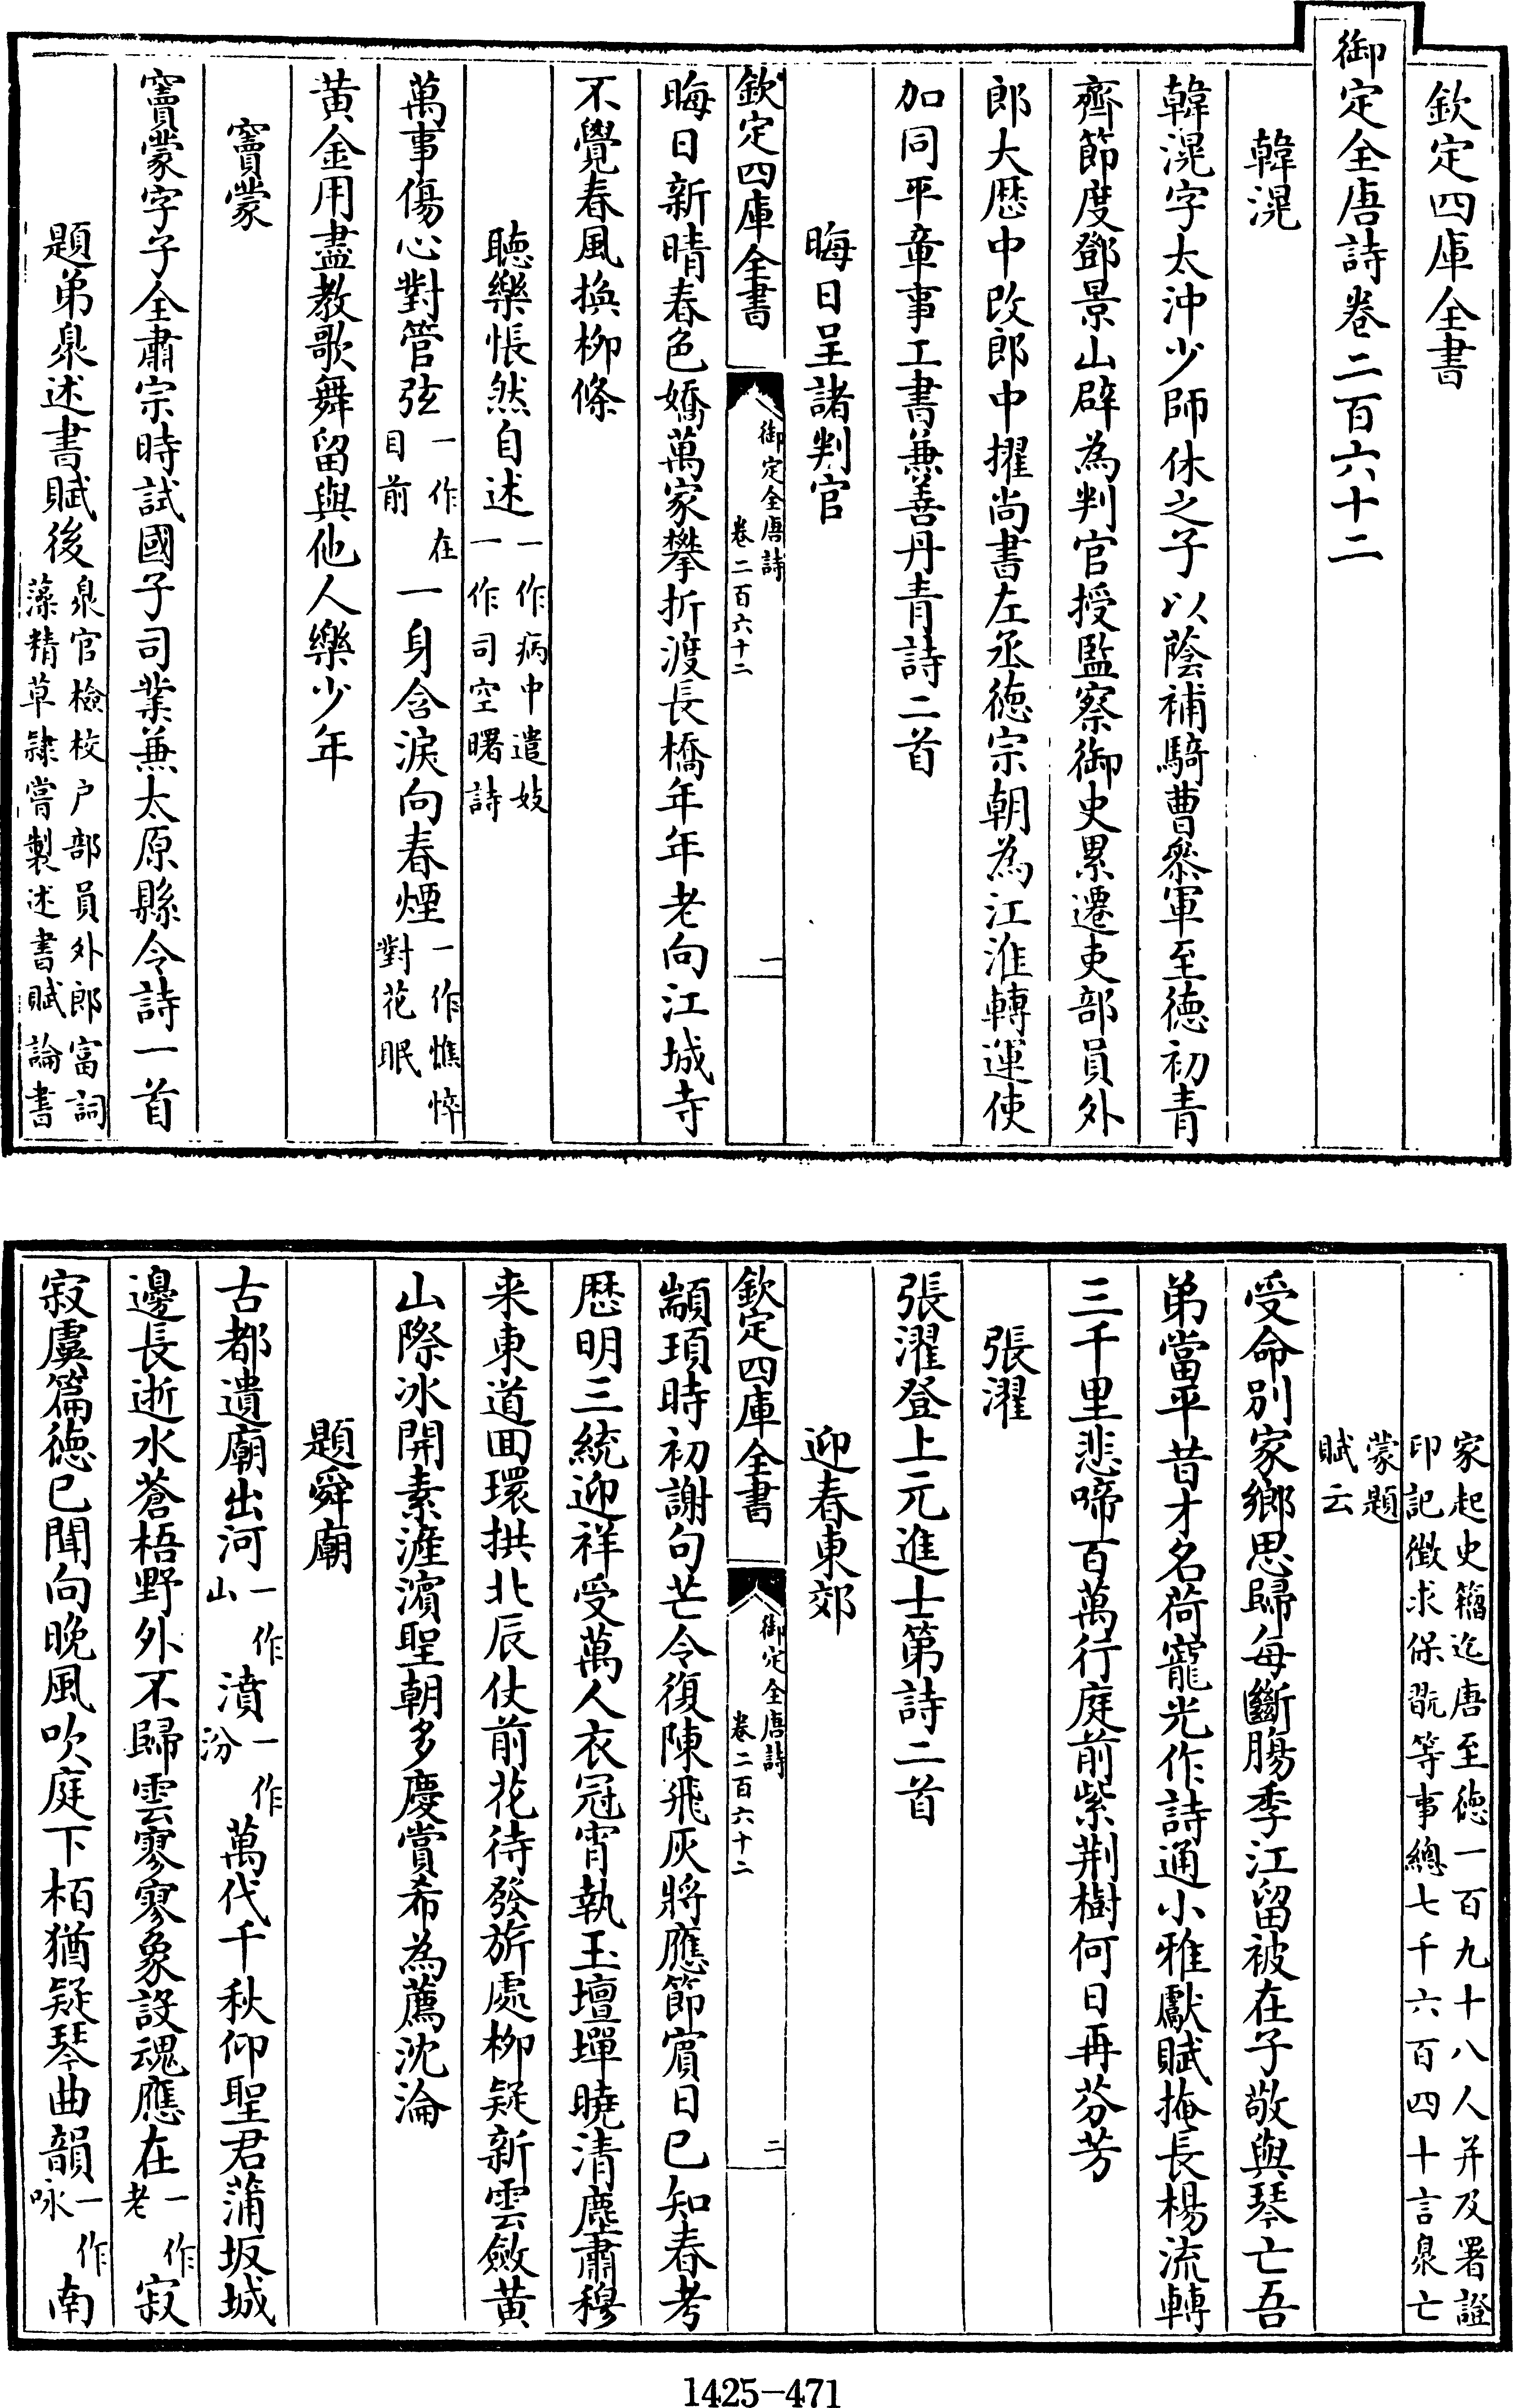 欽定四庫全書
御定全唐詩卷二百六十二
韓滉
韓滉字太沖少師休之子以蔭補騎曹叅軍至徳初青
齊節度鄧景山辟為判官授監察御史累遷吏部員外
郎大厯中改郎中擢尚書左丞徳宗朝為江淮轉運使
加同平章事工書兼善丹青詩二首
晦日呈諸判官
欽定四庫全書
御定全唐詩
卷二百六十二
一
晦日新晴春色嬌萬家攀折渡長橋年年老向江城寺
不覺春風換柳條
聽樂悵然自述一作病中遣妓一作司空曙詩
萬事傷心對管弦一作在目前一身含淚向春煙一作憔悴對花眠
黃金用盡教歌舞留與他人樂少年
竇蒙
竇蒙字子全肅宗時試國子司業兼太原縣令詩一首
題弟臮述書賦後臮官檢校户部員外郎富詞藻精草隸嘗製述書賦論書
家起史籀迄唐至徳一百九十八人并及署證
印記徵求保翫等事總七千六百四十言臮亡
蒙題賦云
受命別家鄉思歸每斷腸季江留被在子敬與琴亡吾
弟當平昔才名荷寵光作詩通小雅獻賦掩長楊流轉
三千里悲啼百萬行庭前紫荆樹何日再芬芳
張濯
張濯登上元進士第詩二首
迎春東郊
欽定四庫全書
御定全唐詩
卷二百六十二
二
顓頊時初謝句芒令復陳飛灰將應節賔日已知春考
厯明三統迎祥受萬人衣冠宵執玉壇墠曉清塵肅穆
来東道回環拱北辰仗前花待發旂處柳疑新雲斂黄
山際冰開素滻濱聖朝多慶賞希為薦沈淪
題舜廟
古都遺廟出河一作山濆一作汾萬代千秋仰聖君蒲坂城
邊長逝水蒼梧野外不歸雲寥寥象設魂應在一作老寂
寂虞篇徳已聞向晚風吹庭下栢猶疑琴曲韻一作咏南
1425-471